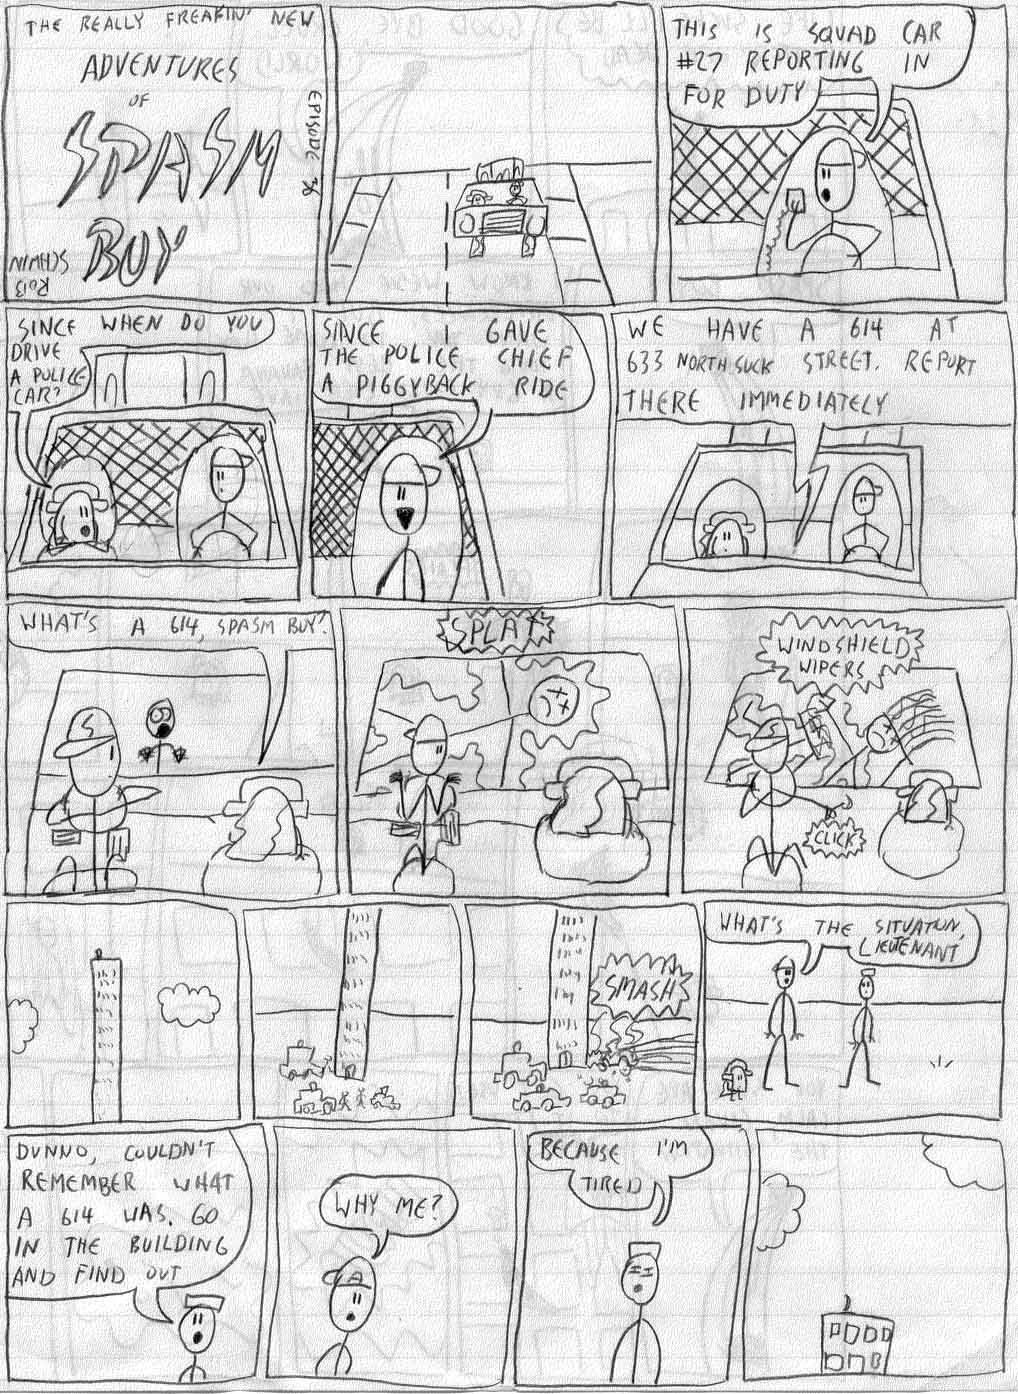 THE REALLY FREAKIN' NEW
ADVENTURES
OF
SPASM
BUY
EPISODE 36
ROB
SCHWIN
THIS IS SQUAD CAR
#27 REPORTING IN
FOR DUTY
SINCE WHEN DO YOU
DRIVE
A POLICE
CAR?
SINCE I GAVE
THE POLICE CHIEF
A PIGGYBACK RIDE
WE HAVE A 614 AT
633 NORTH SUCK STREET. REPORT
THERE IMMEDIATELY
WHAT'S A 614, SPASM BUY?
S
SPLAT
WINDSHIELD
WIPERS
CLICK
SMASH
WHAT'S THE SITUATION,
LIEUTENANT
DUNNO, COULDN'T
REMEMBER WHAT
A 614 WAS. GO
IN THE BUILDING
AND FIND OUT
WHY ME?
BECAUSE I'M
TIRED